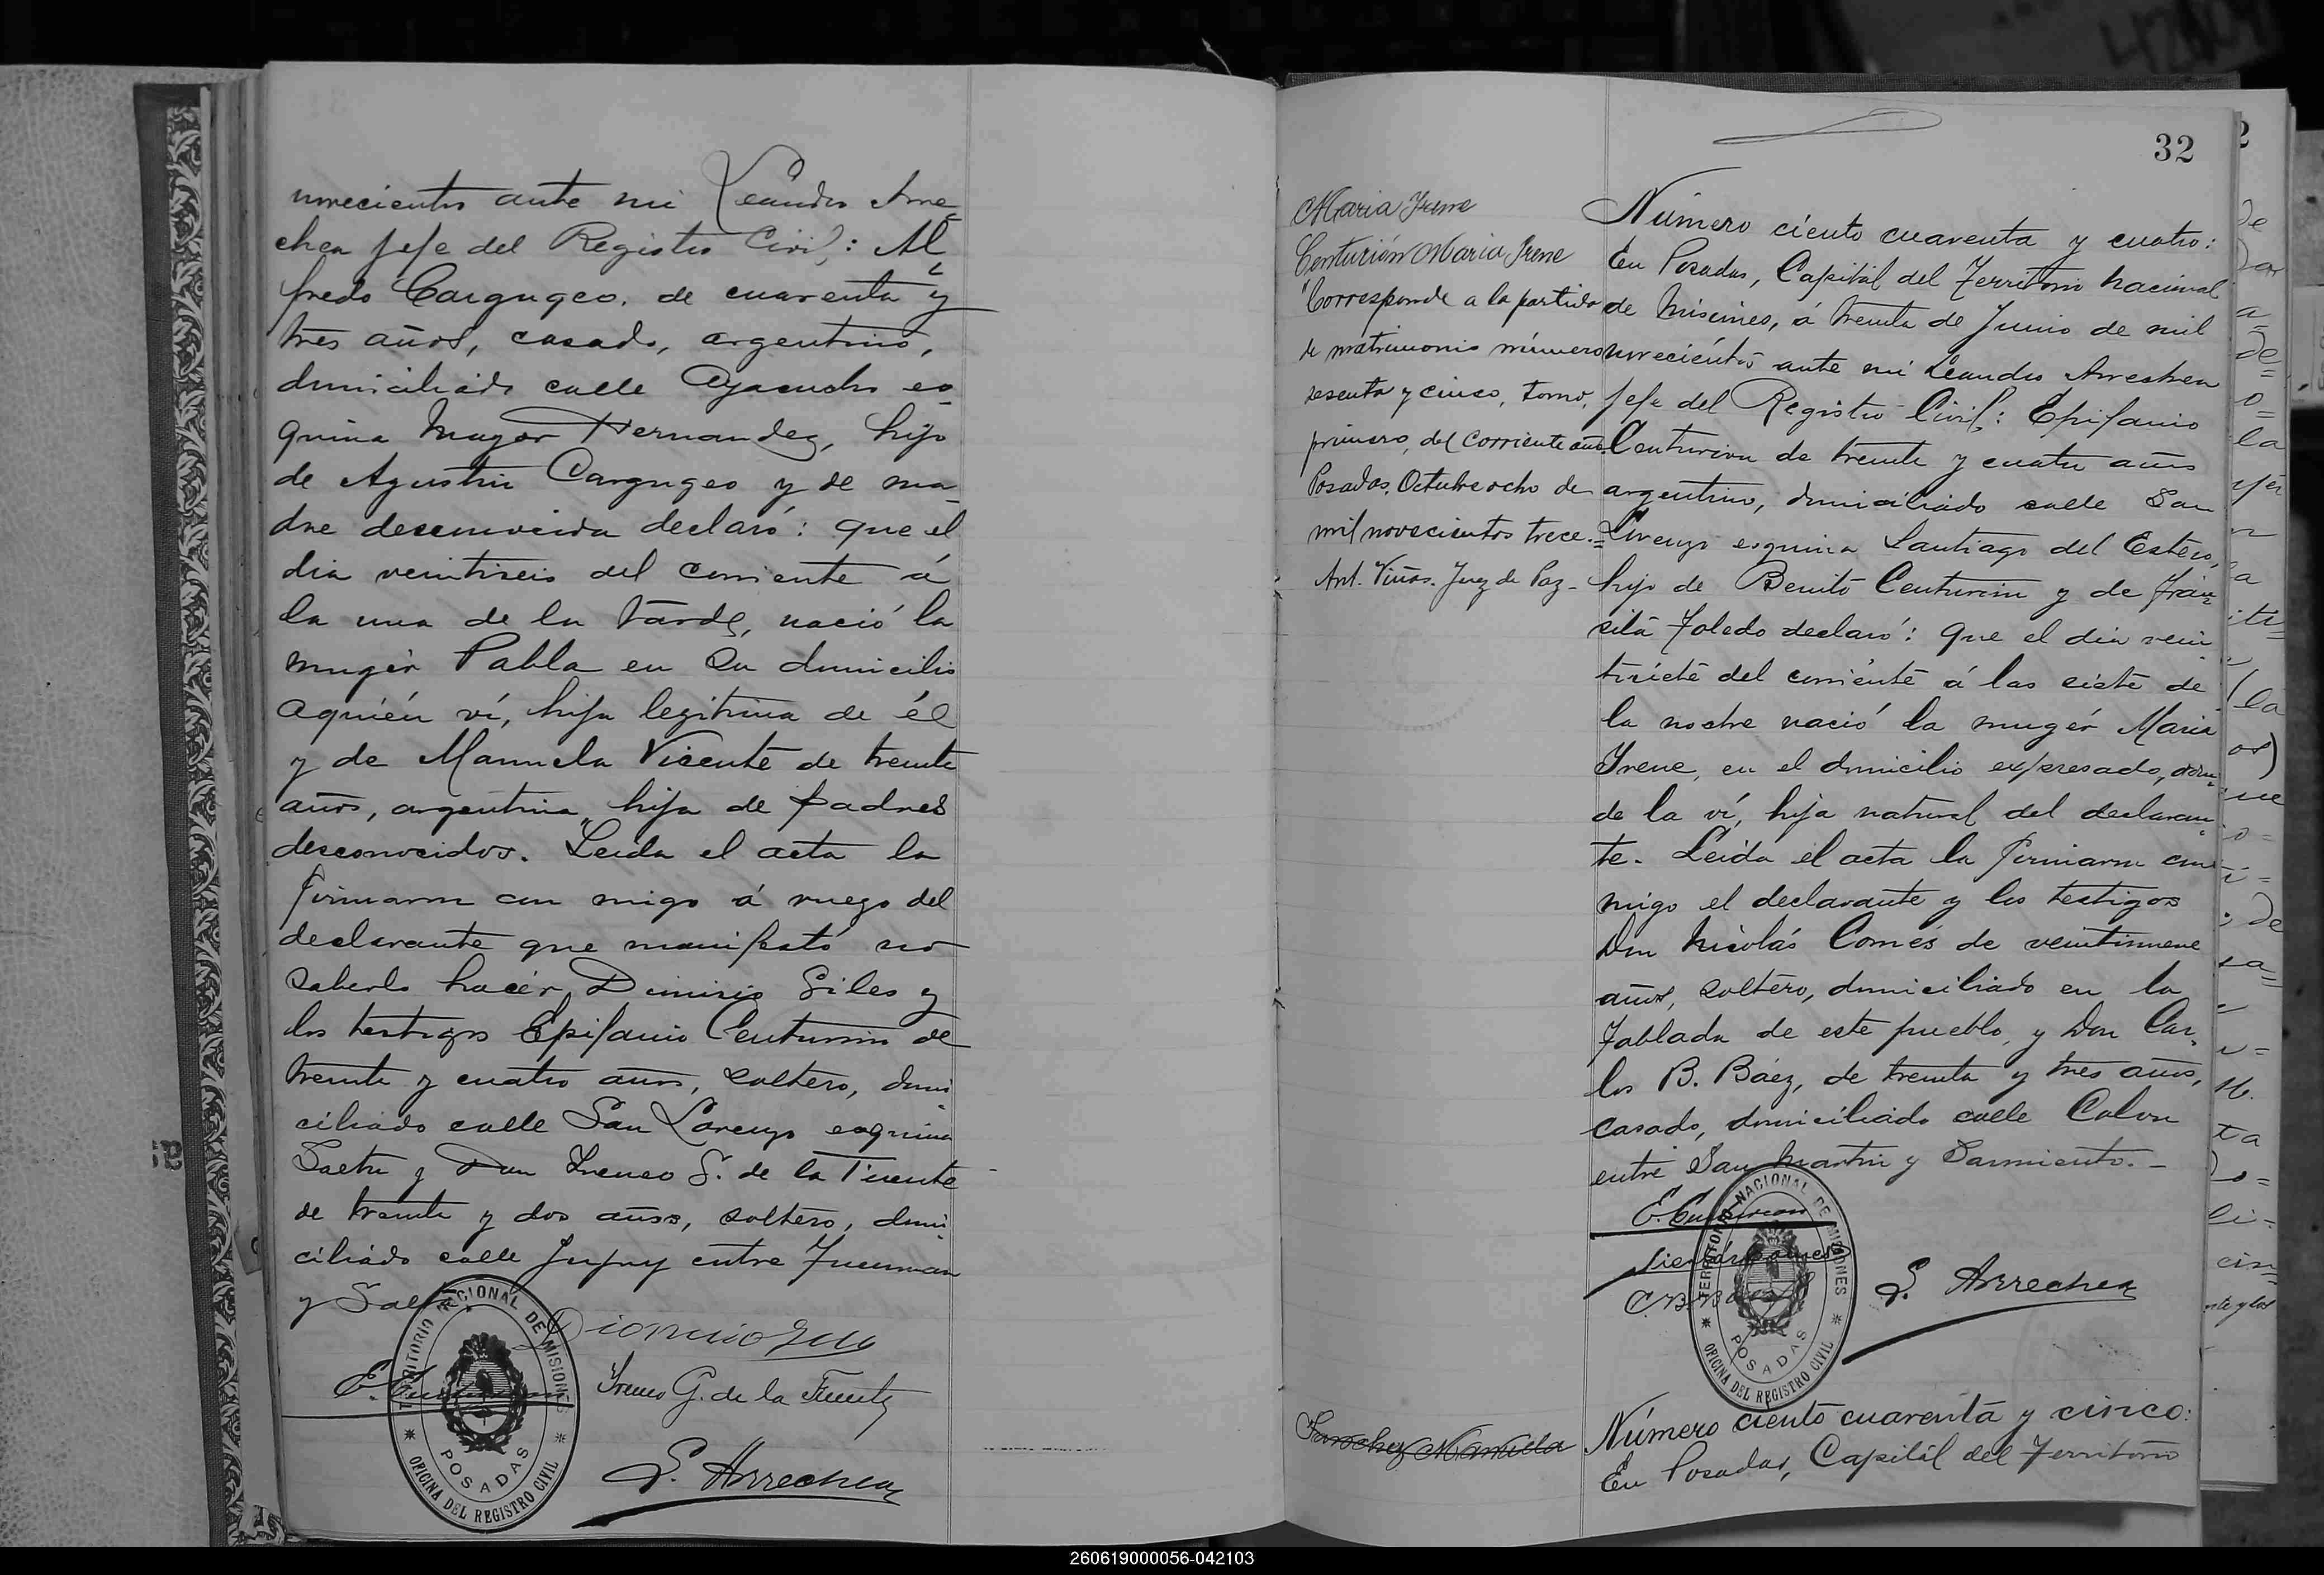 novecientos ante mi Leandro Arre-
chea Jefe del Registro Civil: Al-
fredo Cargugeo, de cuarenta y
tres años, casado, argentino,
domiciliado calle Ayacucho es-
quina Mayor Hernandez, hijo
de Agustin Cargugeo y de ma-
dre desconocida declaró: que el
dia veintiseis del corriente á
la una de la tarde, nació la
mugér Pabla en su domicilio
aquién ví, hija legitima de él
y de Manuela Vicente de treinta
años, argentina, hija de padres
desconocidos. Leida el acta la
firmaron con migo á ruego del
declarante que manifestó no
saberlo hacér, Dionisio Giles y
los testigos Epifanio Centurion de
treinta y cuatro años, soltero, domi-
ciliado calle San Lorenzo esquina
Salta y Don Ireneo G. de la Fuente
de treinta y dos años, soltero, domi-
ciliado calle Jujuy entre Tucuman
y Salta.
E. Centurion
Ireneo G. de la Fuente
L. Arrechea
TERRITORIO NACIONAL DE MISIONES
POSADAS
OFICINA DEL REGISTRO CIVIL
32
Maria Irene
Centurión Maria Irene
"Corresponde a la partida
de matrimonio número
sesenta y cinco, tomo,
primero, del corriente año.
Posadas, Octubre ocho de
mil novecientos trece.=
Ant. Viñas. Juez de Paz-
Número ciento cuarenta y cuatro:
En Posadas, Capitál del Territorio nacional
de Misiones, á treinta de Junio de mil
novecientos ante mi Leandro Arrechea
Jefe del Registro Civil: Epifanio
Centurion de treinta y cuatro años
argentino, domiciliado calle San
Lorenzo esquina Santiago del Estero,
hijo de Benito Centurion y de Trán-
sita Toledo declaró: que el dia vein-
tisiete del corriente á las siete de
la noche nació la mugér Maria
Irene, en el domicilio expresado, don-
de la ví, hija natural del declaran-
te. Leida el acta la firmaron con-
migo el declarante y los testigos
Don Nicolás Comes de veintinueve
años, soltero, domiciliado en la
Tablada de este pueblo, y Don Car-
los B. Báez, de treinta y tres años,
casado, domiciliado calle Colon
entre San Martin y Sarmiento.-
E. Centurion
C. B. Baez
L. Arrechea
TERRITORIO NACIONAL DE MISIONES
POSADAS
OFICINA DEL REGISTRO CIVIL
Sanchez Manuela
Número ciento cuarenta y cinco:
En Posadas, Capitál del Territorio
260619000056-042103